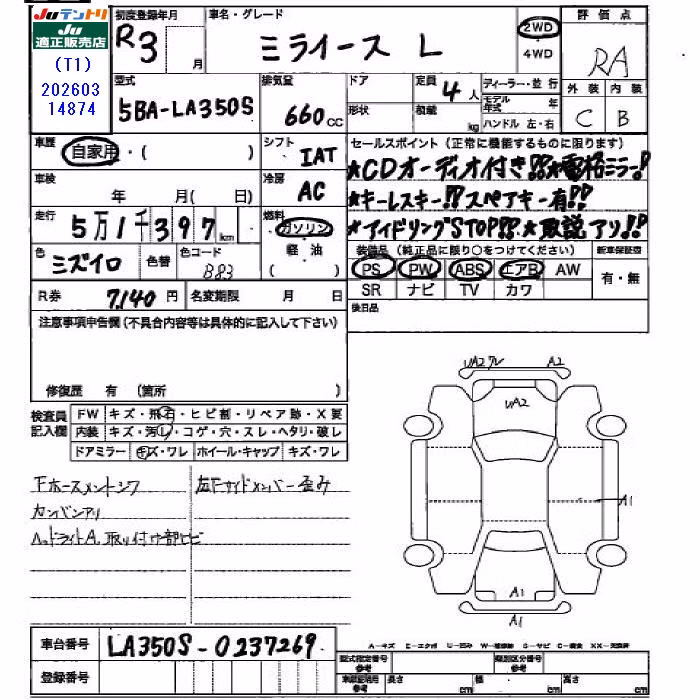 Juテントリ
Ju
適正販売店
(T1)
202603
14874
初度登録年月
R3
月
車名・グレード
ミライース L
2WD
・
4WD
評価点
RA
外装 内装
C B
型式
5BA-LA350S
排気量
660cc
ドア
形状
定員
4人
積載
kg
ディーラー・並行
モデル年式 年
ハンドル 左・右
車歴
自家用・( )
シフト
IAT
セールスポイント(正常に機能するものに限ります)
★CDオーディオ付き!!★電格ミラー!!
★キーレスキー!!スペアキー有!!
★アイドリングSTOP!!★取説アリ!!
車検
年 月( )
冷房
AC
走行
5万1千397km
燃料
ガソリン
・
軽油
( )
色
ミズイロ
色替
色コード
B83
装備品(純正品に限り○をつけてください)
新車保証書
PS PW ABS エアB AW
SR ナビ TV カワ
有・無
R券
7140円
名変期限 月 日
後日品
注意事項申告欄(不具合内容等は具体的に記入して下さい)
修復歴 有 (箇所 )
検査員
記入欄
FW キズ・飛石・ヒビ割・リペア跡・X要
内装 キズ・汚レ・コゲ・穴・スレ・ヘタリ・破レ
ドアミラー キズ・ワレ ホイール・キャップ キズ・ワレ
Fホースメントシワ
左Fサイドメンバー歪み
カンバンアリ
ヘッドライトA.取り付け部ヒビ
UA2ワレ
A2
UA2
A1
A1
A1
車台番号
LA350S-0237269
登録番号
型式指定番号
参考
類別区分番号
参考
車両証明書
参考
長さ cm 幅 cm 高さ cm